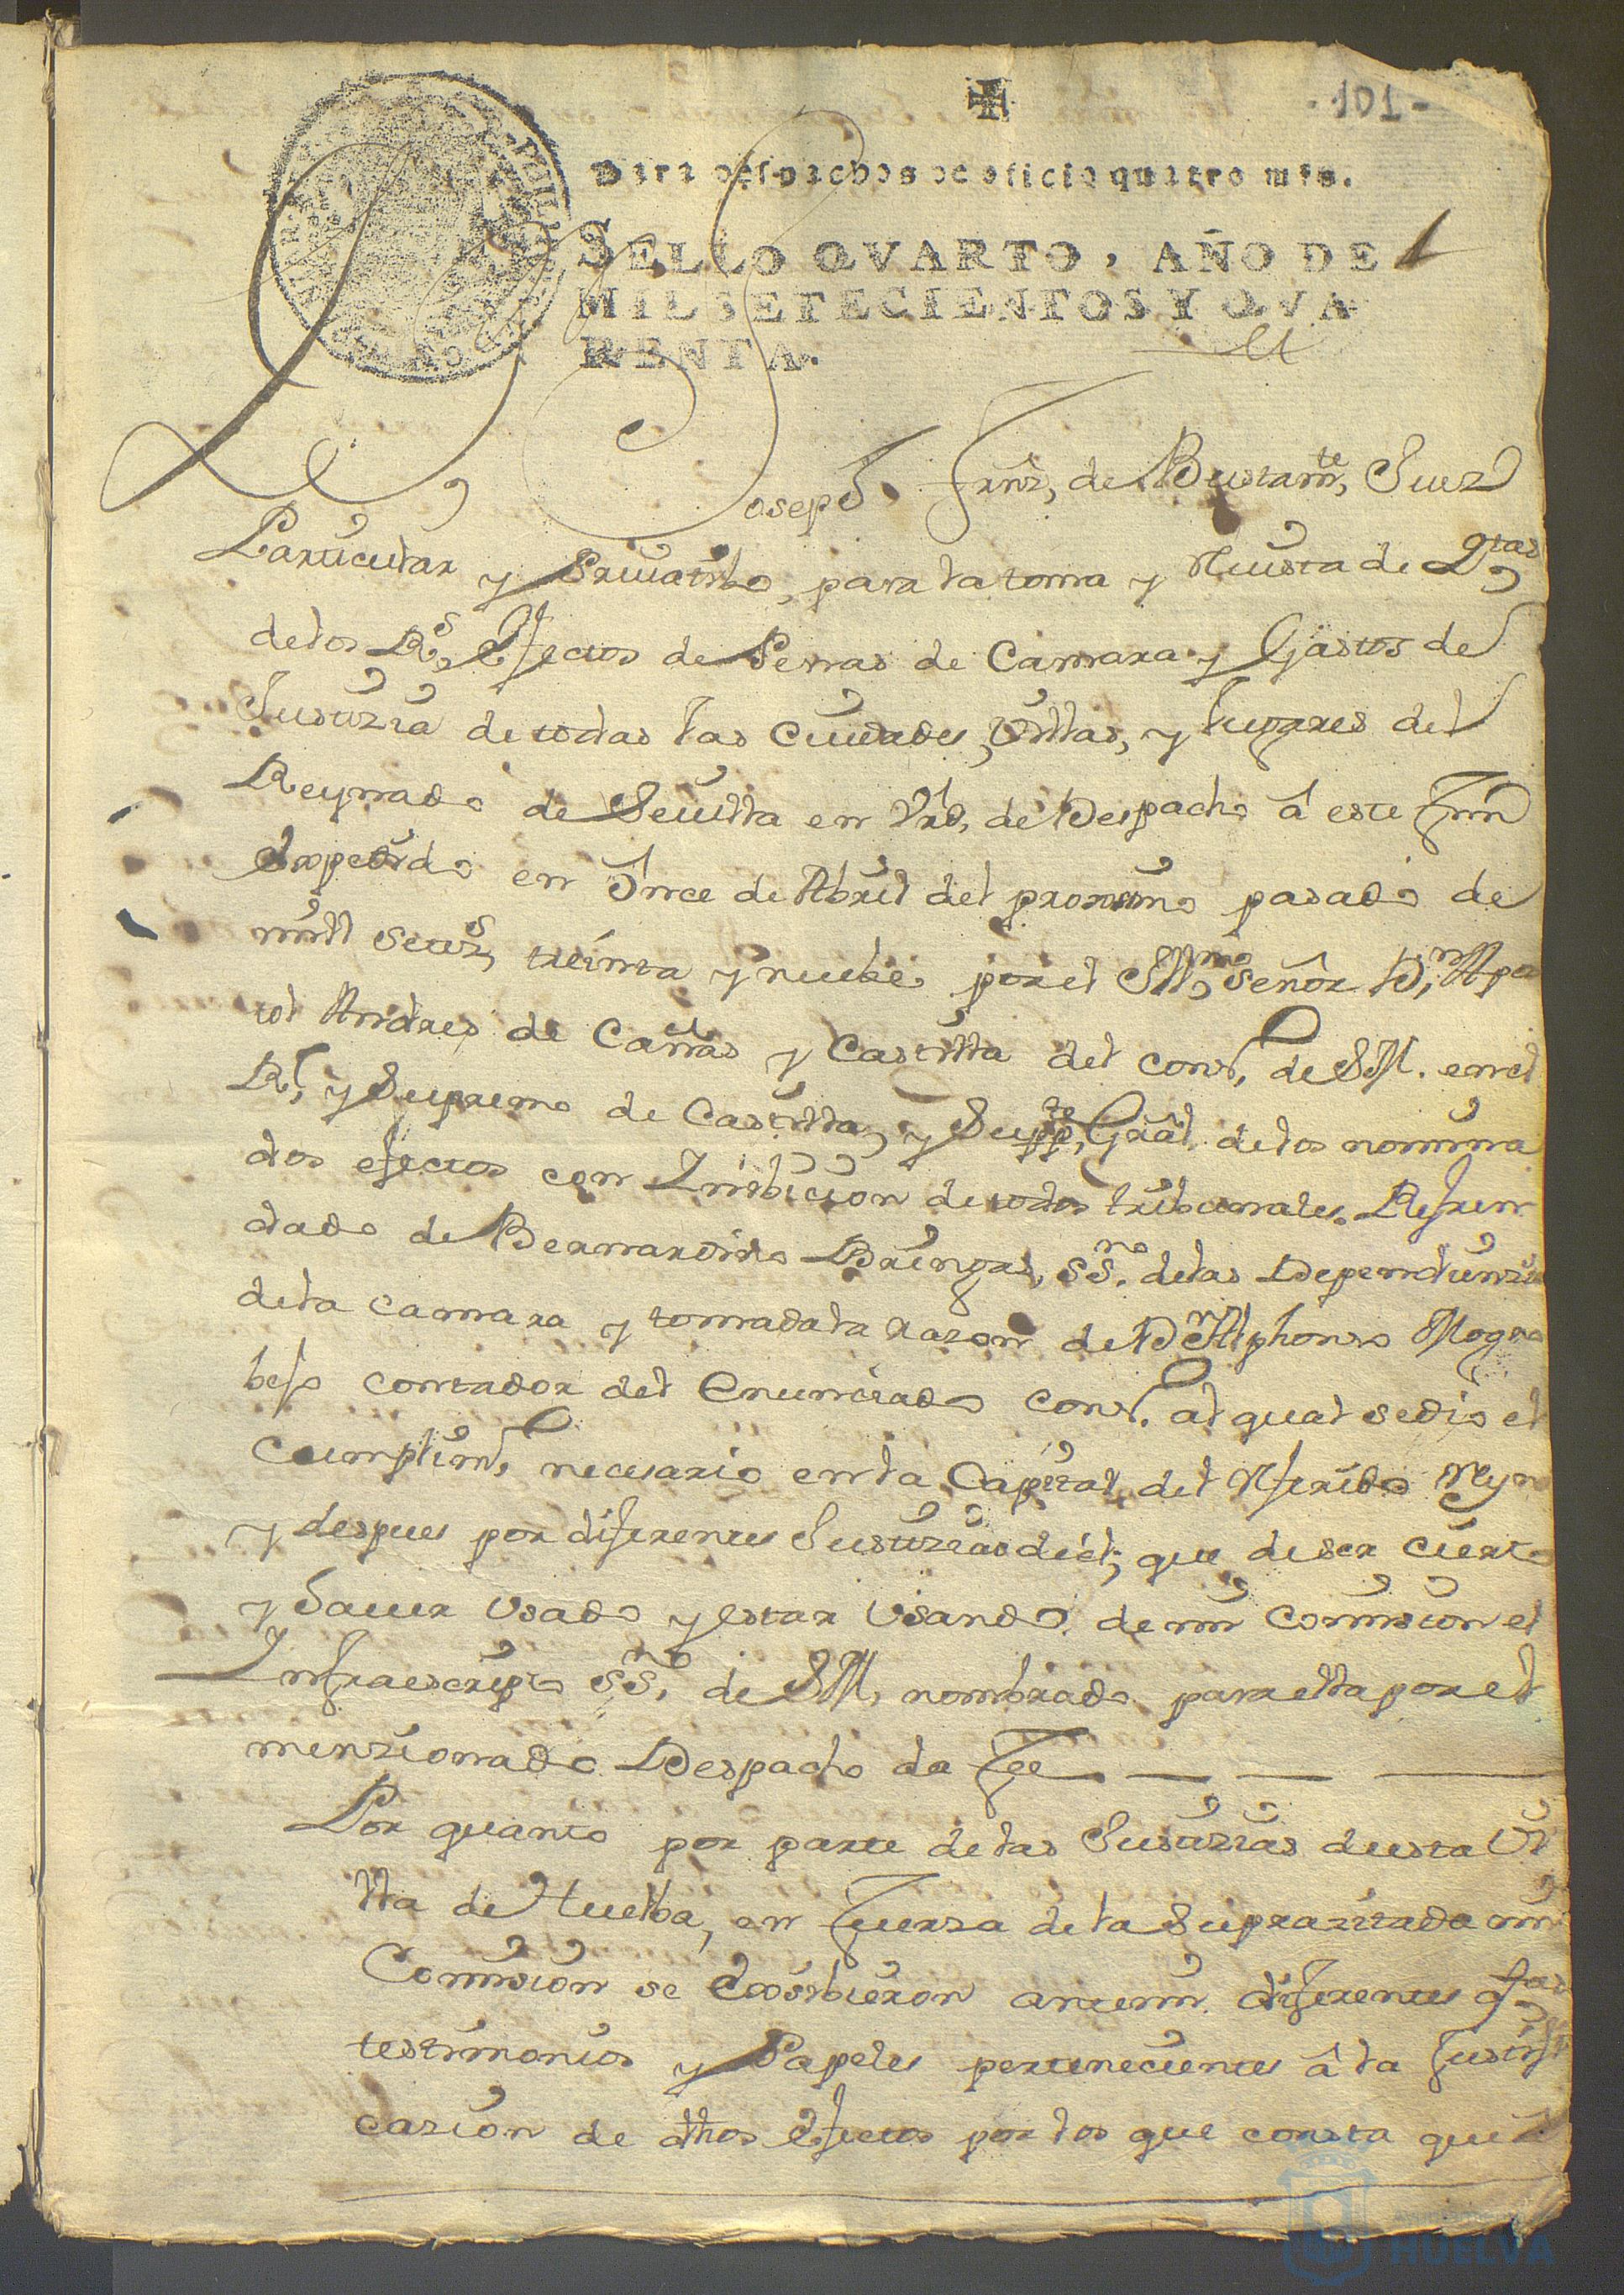 101-
Para despachos de oficio quatro mrs.
SELLO QVARTO, AÑO DE
MIL SETECIENTOS Y QVA
RENTA.
Dn Joseph Frnz, de Bustamte, Juez
Particular y Privatibo, para la toma y Revista de Qtas
de los Rs, Efectos de Penas de Camara y Gastos de
Justizia de todas las Ciudades, Villas, y lugares del
Reynado de Sevilla en Vrd, de Despacho â este fin
Expedido en Once de Abril del proximo pasado de
mill setezs, treinta y nuebe por el Illmo, Señor Dn, Apos
tol Andres de Cañas y Castilla del Cons, de S M. en el
Rl, y Supremo de Castilla, y Suppte, Gràl de los nomina
dos efectos con Inibicion de todos tribunales. Refren
dado de Bernardino Bringas, SSno. de las Dependenzias
de la Camara y tomada la razon de Dn Alphonso Mogro
bejo Contador del Enunciado Cons. al qual se dio el
Cumplim, necesario en la Capital del Referido Reyno
y despues por diferentes Justizias de el; que de ser cierto
y haver Usado y estar Usando de mi Comision el
Infraescripto SSno, de S M, nombrado para ella por el
menzionado Despacho da Fee
Por quanto por parte de las Justizias de esta Vi
lla de Huelba, en fuerza de la Suprazitada mi
Comision se Exsibieron antemi diferentes qtas
testimonios y Papeles pertenecientes â la Justifi
cazion de dhos Efectos por los que consta que
Ayuntamiento
HUELVA